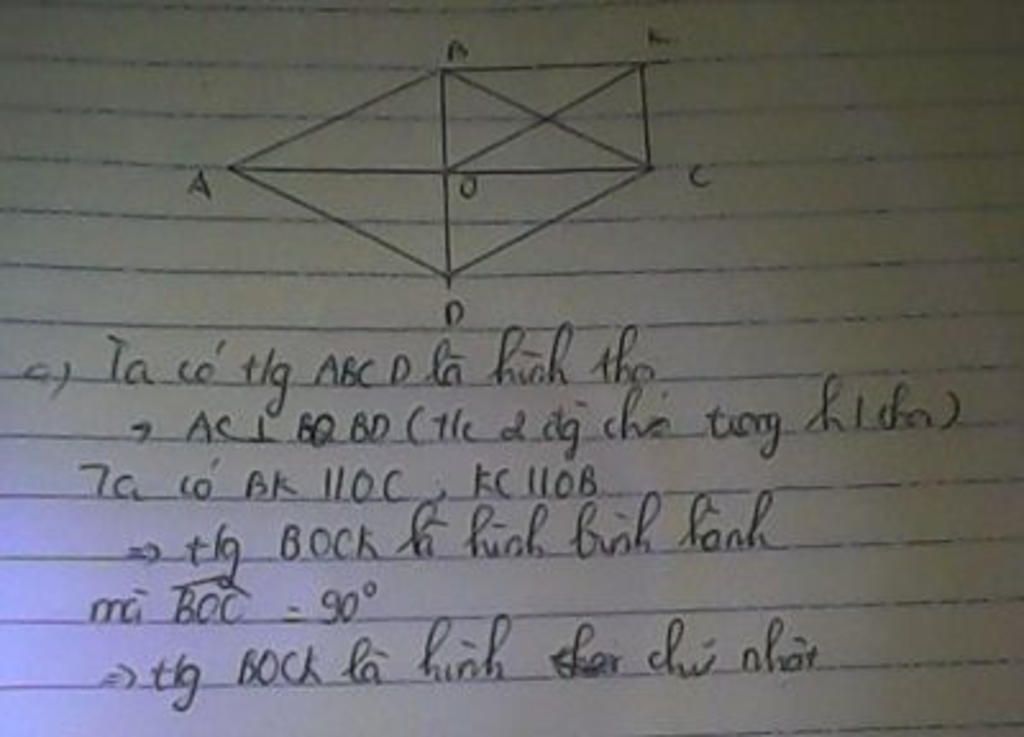 B K
A O C
D
c) Ta có t/g ABCD là hình thoi
→ AC ⊥ BD (t/c 2 đg chéo trong h/thoi)
Ta có BK // OC, KC // OB
=> t/g BOCK là hình bình hành
mà BOC = 90°
=> t/g BOCK là hình chữ nhật